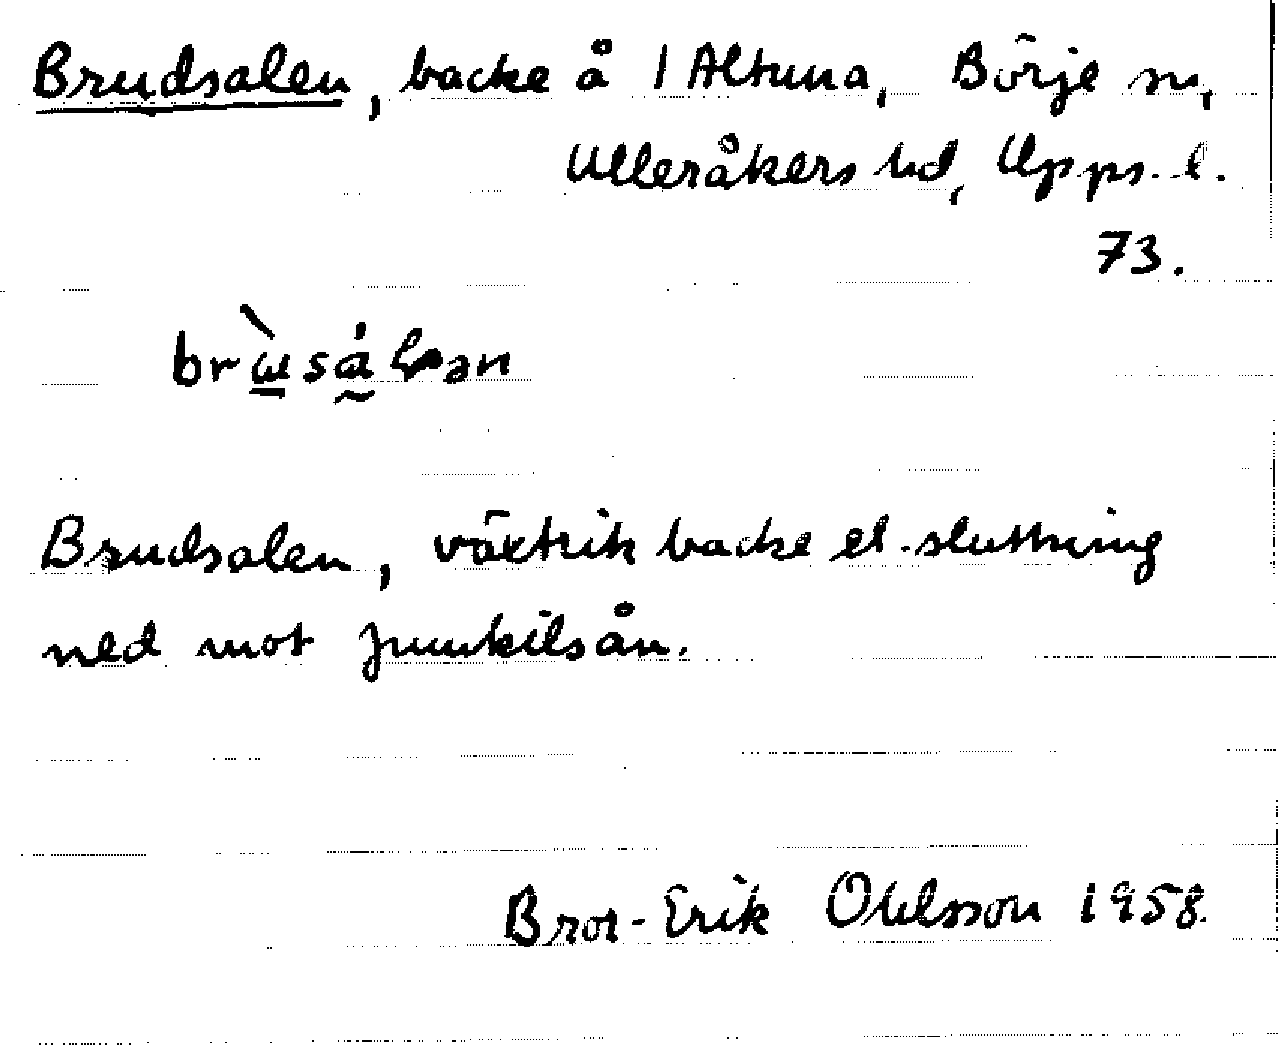 Brudsalen, backe å 1 Altuna, Börje sn,
Ulleråkers hd, Upps. l.
73.
Brudsalen, växtrik backe el. sluttning
ned mot Jumkilsån.
Bror-Erik Ohlsson 1958.